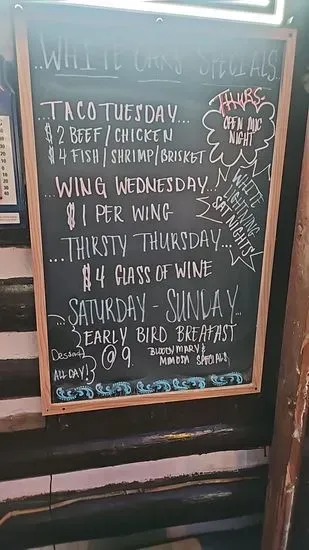 ...WHITE OAKS SPECIALS...
TACO TUESDAY...
$2 BEEF/CHICKEN
$4 FISH/SHRIMP/BRISKET
THURS-
OPEN MIC
NIGHT
...WING WEDNESDAY...
$1 PER WING
WHITE
LIGHTNING
SAT NIGHTS
...THIRSTY THURSDAY...
$4 GLASS OF WINE
...SATURDAY - SUNDAY...
EARLY BIRD BREAFAST
@ 9
BLOODY MARY &
MIMOSA SPECIALS
ALL DAY!